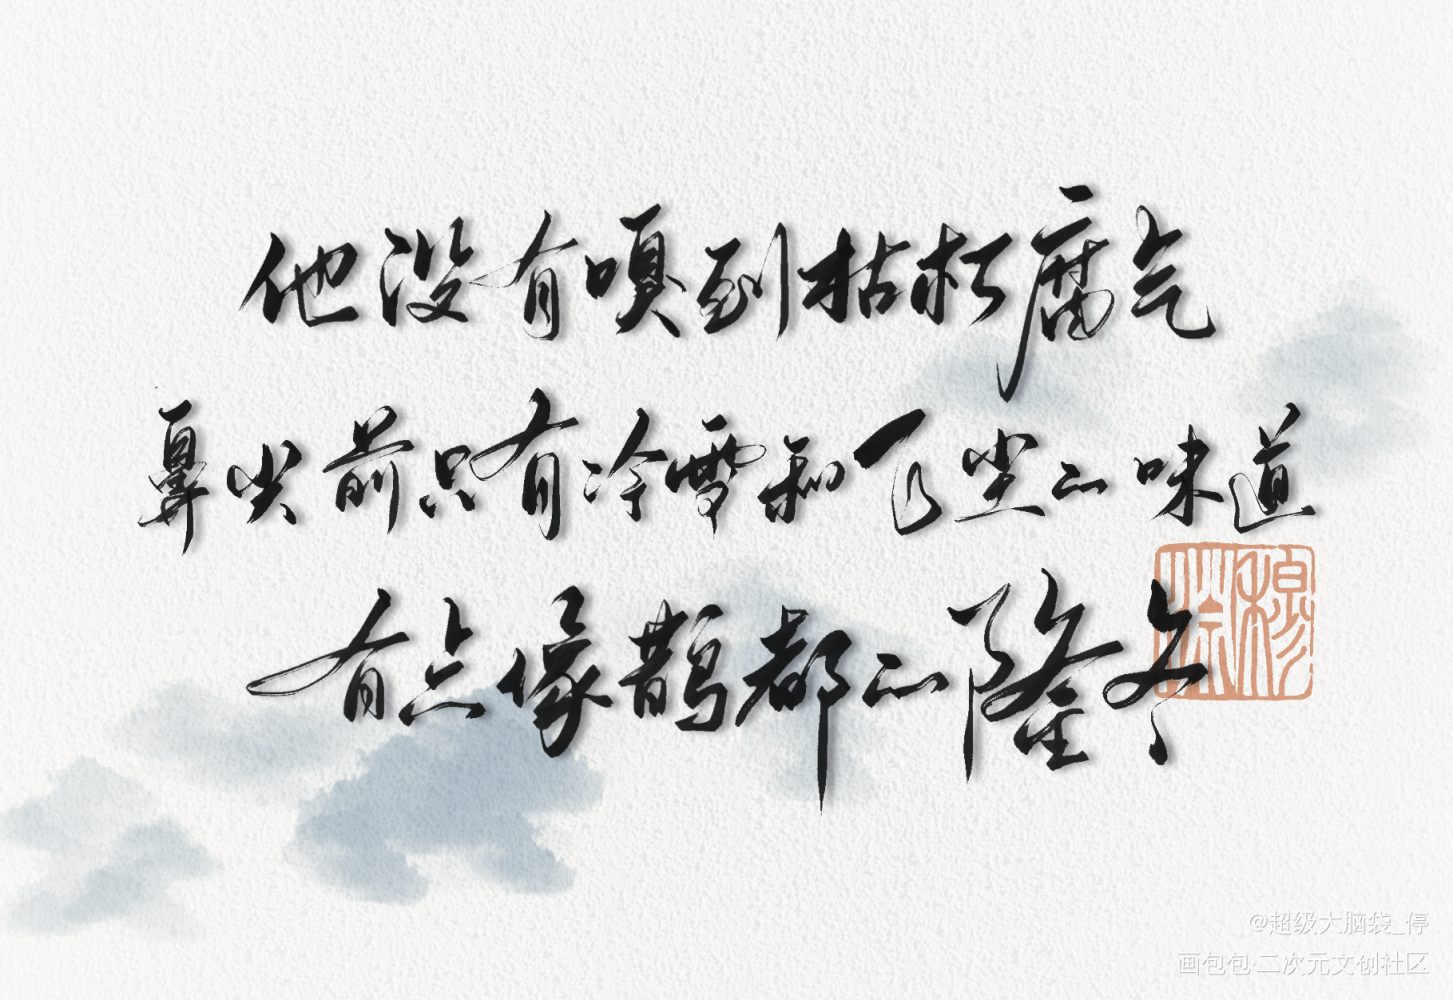 他没有嗅到枯朽腐气
鼻尖前只有冷雪和飞尘的味道
有点像鹊都的隆冬
穆
@超级大脑袋_停
画包包·二次元文创社区